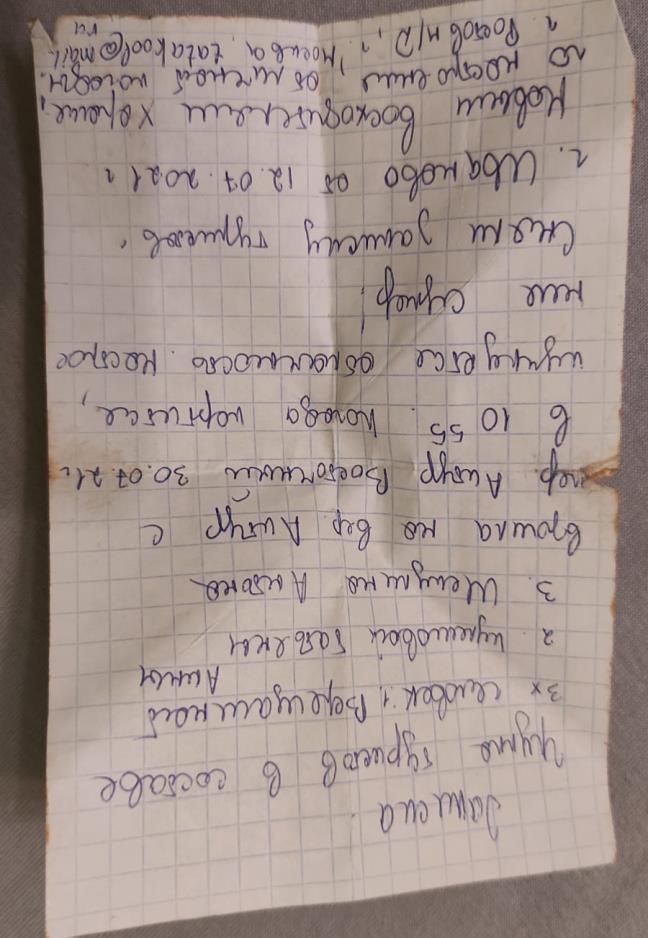 Записка.
Группа туристов в составе
3х человек: 1. Верещагиной
Анны
2. Шумовой Татьяны
3. Шелудина Антона
взошла на вер. Аптур с
пер. Аптур Восточный 30.07.21г.
в 10 55. Погода портится,
опускается облачность. Настрое
ние супер!
Сняли записку туристов
г. Иваново от 12.07.2021г
Новым восходителям хороше
го настроения, отличной погоды.
г. Ростов н/Д, г. Москва, tatakool@mail.
ru